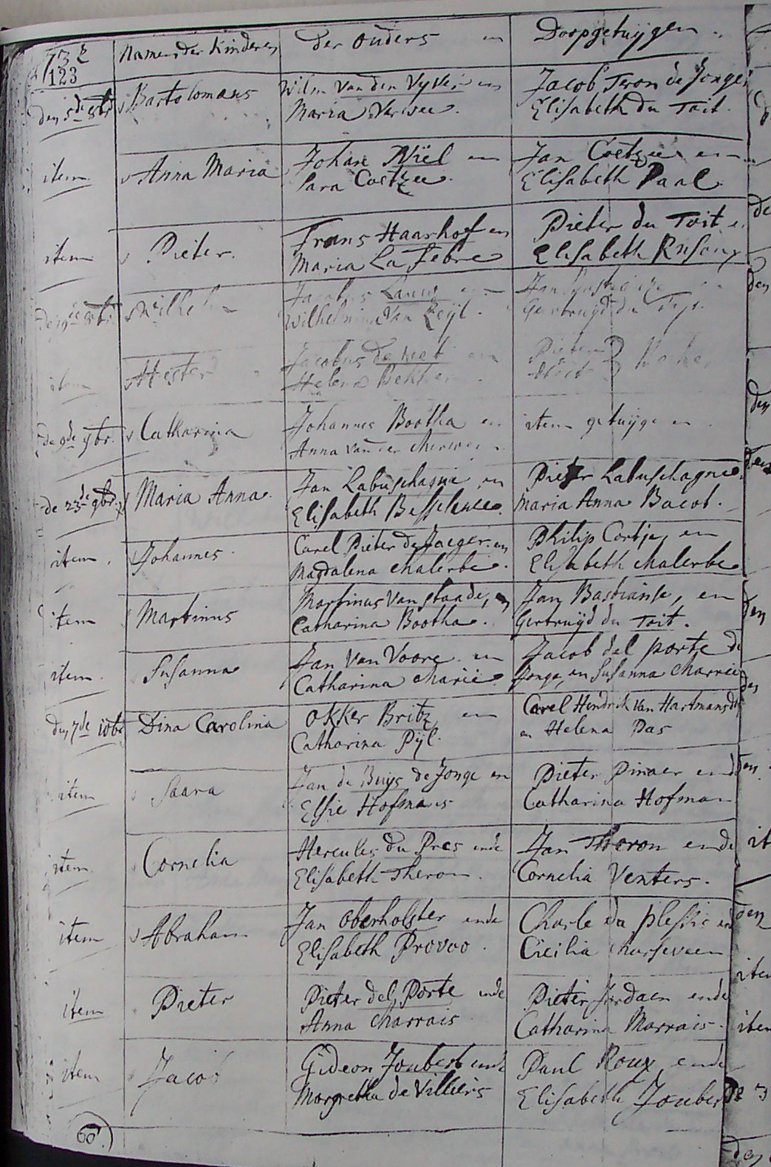 173
123
Namen der Kinderen der Ouders en Doopgetuijgen
den 5de 8br Bartolomeus Wilm van den Vyver en Jacob Teron de Jonge
Maria Verwee. Elisabeth du Toit.
item Anna Maria Johan Niel en Jan Coetzee en
Sara Coetzee. Elisabeth Paal.
item Pieter. Frans Haarhof en Pieter du Toit
Maria La Febre Elisabeth
Wilhelm Jacobus Lauw en Jan
Wilhelmina Van Zeijl. Gertruijd du
item Hester Jacobus de wet en Pieter
Helena Bekker
de 9de 9br. Catharina Johannes Bootha en item getuijgen
Anna van der Merwe
de 23de 9br. Maria Anna. Jan Labuschagne en Pieter Labuschagne
Elisabeth Maria Anna Bacot.
item. Johannes. Carel Pieter de Jaeger en Philip Cortje, en
Magdalena Malerbe. Elisabeth Malerbe
item Martinus Martinus van Staade, en Jan Bastianse, en
Catharina Bootha. Gertruijd du Toit.
item. Susanna Jan van Voore en Jacob del porte de
Catharina Marie. Jonge, en Susanna
den 7de 10br Dina Carolina Okker Britz en Carel Hendrik van
Catharina Pijl. en Helena Das
item Saara Jan de Buys de Jonge en Pieter Pinaer en
Elsie Hofmans Catharina Hofman
item. Cornelia Hercules du Prees ende Jan Theron ende
Elisabeth Theron. Cornelia Venters.
item Abraham Jan oberholster ende Charle du plessis
Elisabeth Provoo. Cicilia
item Pieter Pieter del Porte ende Pieter Jordaen ende
Anna Marrais Catharina Marrais.
item Jacob Gideon Joubert ende Paul Roux ende
Margretha de Villiers Elisabeth Joubert
60.